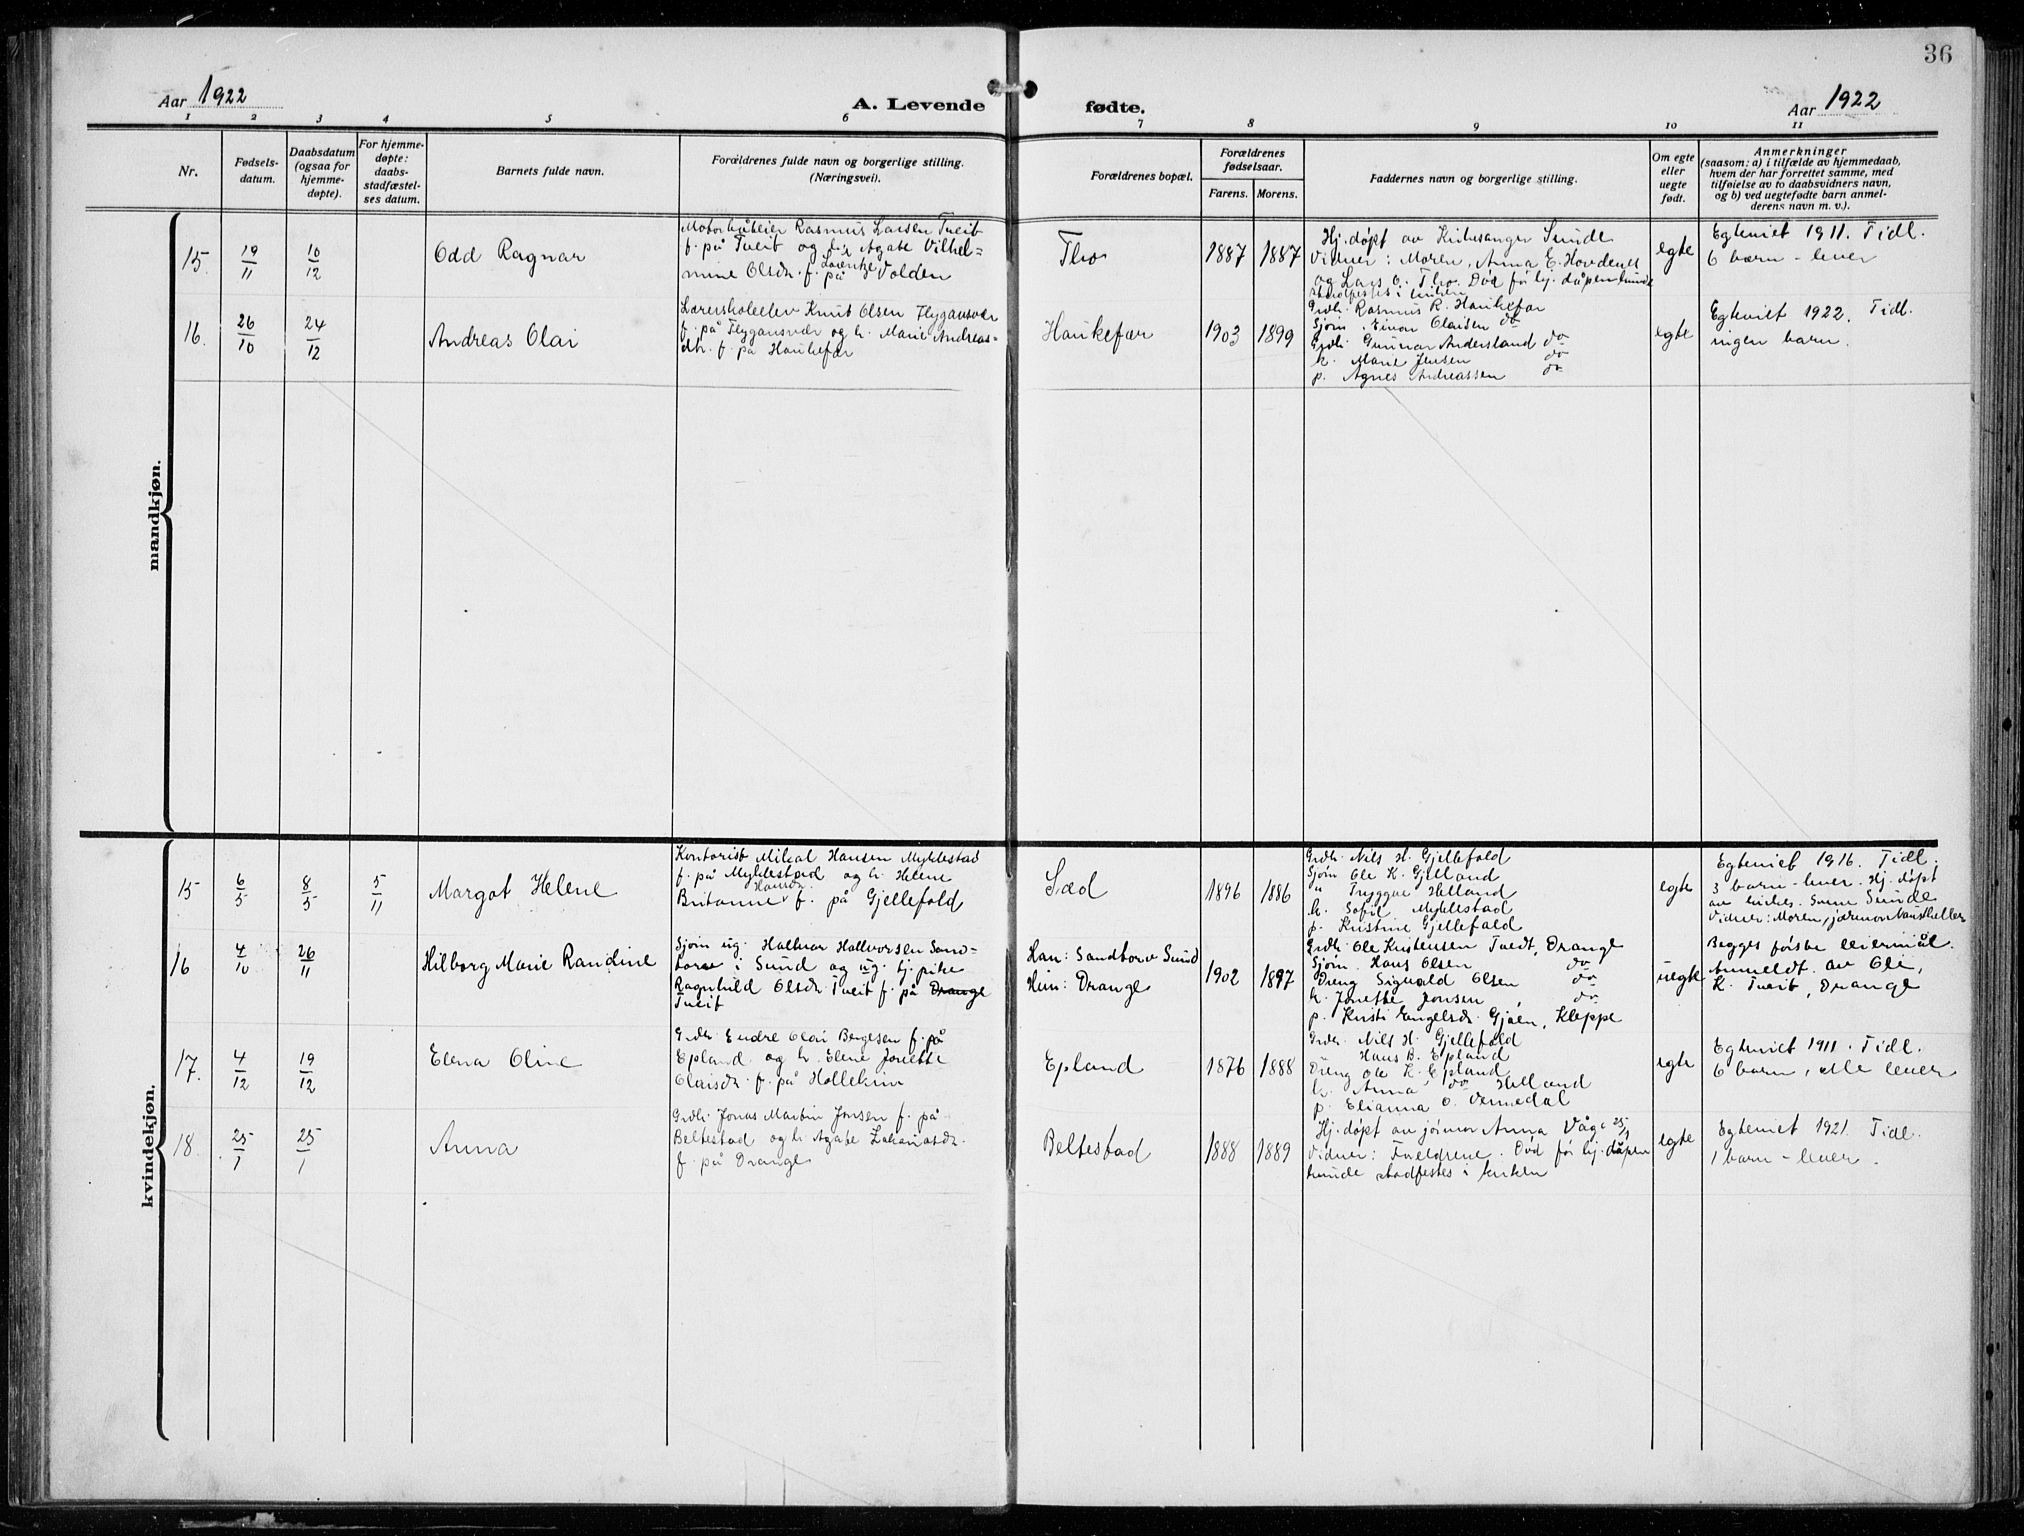 36
Aar 1922
A. Levende fødte.
Aar 1922
1 2 3 4 5 6 7 8 9 10 11
Nr.
Fødsels-
datum.
Daabsdatum
(ogsaa for
hjemme-
døpte).
For hjemme-
døpte:
daabs-
stadfæstel-
ses datum.
Barnets fulde navn.
Forældrenes fulde navn og borgerlige stilling.
(Næringsvei).
Forældrenes bopæl.
Forældrenes
fødselsaar.
Farens. Morens.
Faddernes navn og borgerlige stilling.
Om egte
eller
uegte
født.
Anmerkninger
(saasom: a) i tilfælde av hjemmedaab,
hvem der har forrettet samme, med
tilføielse av to daabsvidners navn,
og b) ved uegtefødte barn anmel-
derens navn m. v.).
mandkjøn.
15. 19/11 10/12
Odd Ragnar
Rasmus Larsen Tveit
f. på Tveit og Agate Vilhel-
mine Olsdr. f. på Volden
Tho
1887 1887
Hj. døpt av Kirkesanger Sunde
Vidner: Moren, Anna E. Hovdenes
og Lars O. Tho. Død før hj. dåpen kunde
stadfestes i kirken
egte
Egteviet 1911. Tidl.
6 barn - lever
16. 26/10 24/12
Andreas Olai
Lærerskoleelev Knut Olsen Flygansvær
f. på Flygansvær og h. Marie Andreas-
dtr. f. på Haukefær
Haukefær
1903 1899
Grdbr. Rasmus R. Haukefær
Sjøm. Einar Olaisen do
Grdbr. Gunnar Andersland do
k. Marie Jensen do
p. Agnes Andreassen do
egte
Egteviet 1922. Tidl.
ingen barn.
kvindekjøn.
15 6/5 8/5 5/11
Margot Helene
Kontorist Mikal Hansen Myklestad
f. på Myklestad og h. Helene
Hansdr.
Britanne f. på Gjellefald
Sæd
1896 1886
Grdbr. Nils H. Gjellefald
Sjøm Ole K. Gjelland
" Tryggve Helland
k. Sofie Myklestad
p. Kristine Gjellefald
egte
Egteviet 1916. Tidl.
3 barn - lever. Hj. døpt
av kirkes. Sunde
Vidner: Moren, jormor
16 4/10 26/11
Hilborg Marie Randine
Sjøm ug. Hallvor Hallvorsen Sand-
torv i Sund og ug. tj. pike
Ragnhild Olsdr. Tveit f. på Drange
Tveit
Han: Sandtorv Sund
Hun: Drange
1902 1897
Grdbr. Ole Kristensen Tvedt, Drange
Sjøm. Hans Olsen do
Dreng Sigvald Olsen do
k. Jonette Jonsen, do
p. Kristi Engelsdr. Gjøen, Kleppe
uegte
Begges første leiermål.
Anmeldt av Ole
K. Tveit, Drange
17. 4/12 19/12
Elena Oline
Grdbr. Endre Olai Bergesen f. på
Epland og h. Elene Jonette
Olaisdr. f. på Hollekim
Epland
1876 1888
Grdbr. Nils H. Gjellefald
Hans B. Epland
Dreng Ole K. Epland
k. Anna do Helland
p. Elianna O. Vermedal
egte
Egteviet 1911. Tidl.
6 barn, alle lever
18. 25/1 25/1
Anna
Grdbr. Jonas Martin Jonsen f. på
Beltestad og h. Agate Zakariasdr.
f. på Drange
Beltestad
1888 1889
Hj. døpt av jormor Anna Våge 25/1
Vidner: Foreldrene. Død før hj. dåpen
kunde stadfestes i kirken
egte
Egteviet 1921. Tidl.
1 barn - lever.